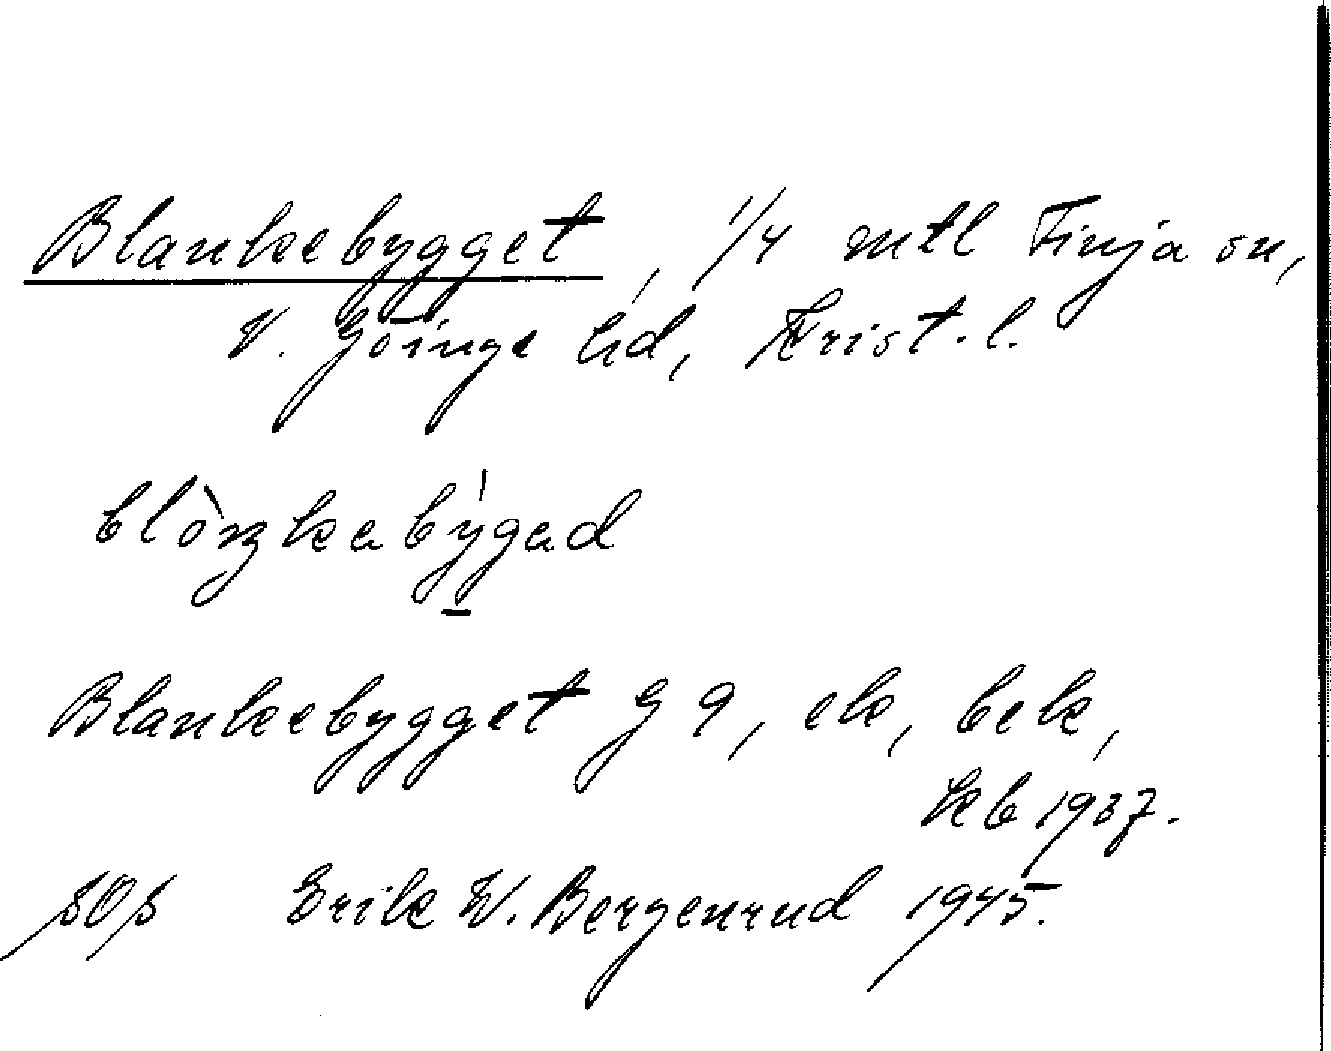 Blankebygget, 1/4 mtl Finja sn,
V. Göinge hd, Krist. l.
Blankebygget G 9, ek, bek,
kb 1937.
Erik W. Bergenrud 1945.